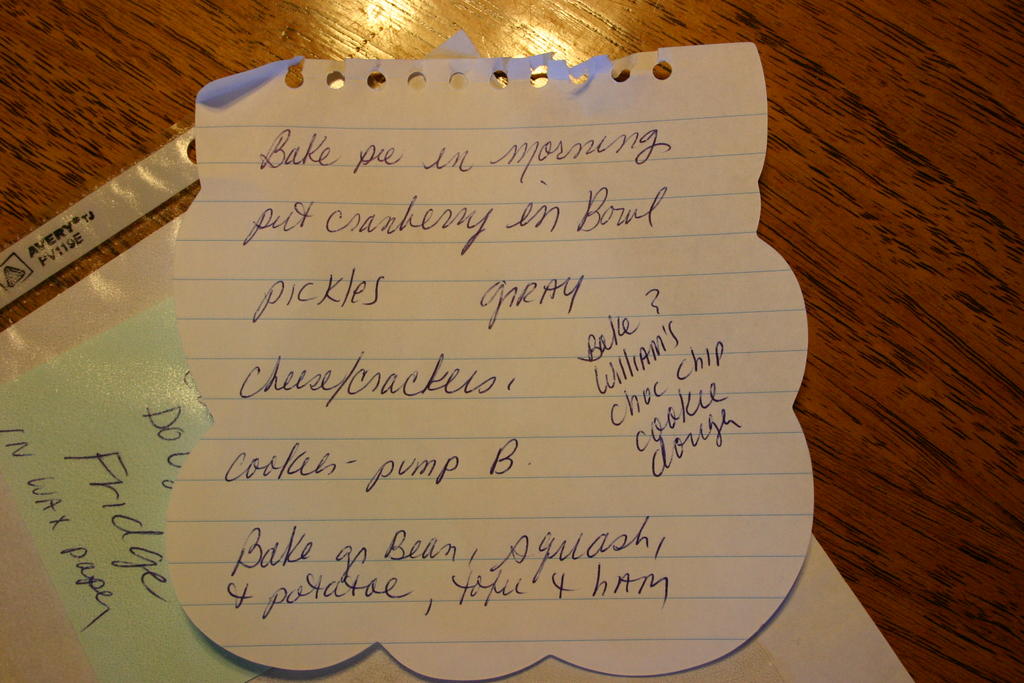 Bake pie in morning
put cranberry in Bowl
pickles gRAY
cheese/crackers,
Bake ?
William's
choc chip
cookie
dough
cookies - pump B.
Bake gr Bean, squash,
& potatoe, tofu & hAM
AVERY®
PV119E
Fridge
IN WAX paper